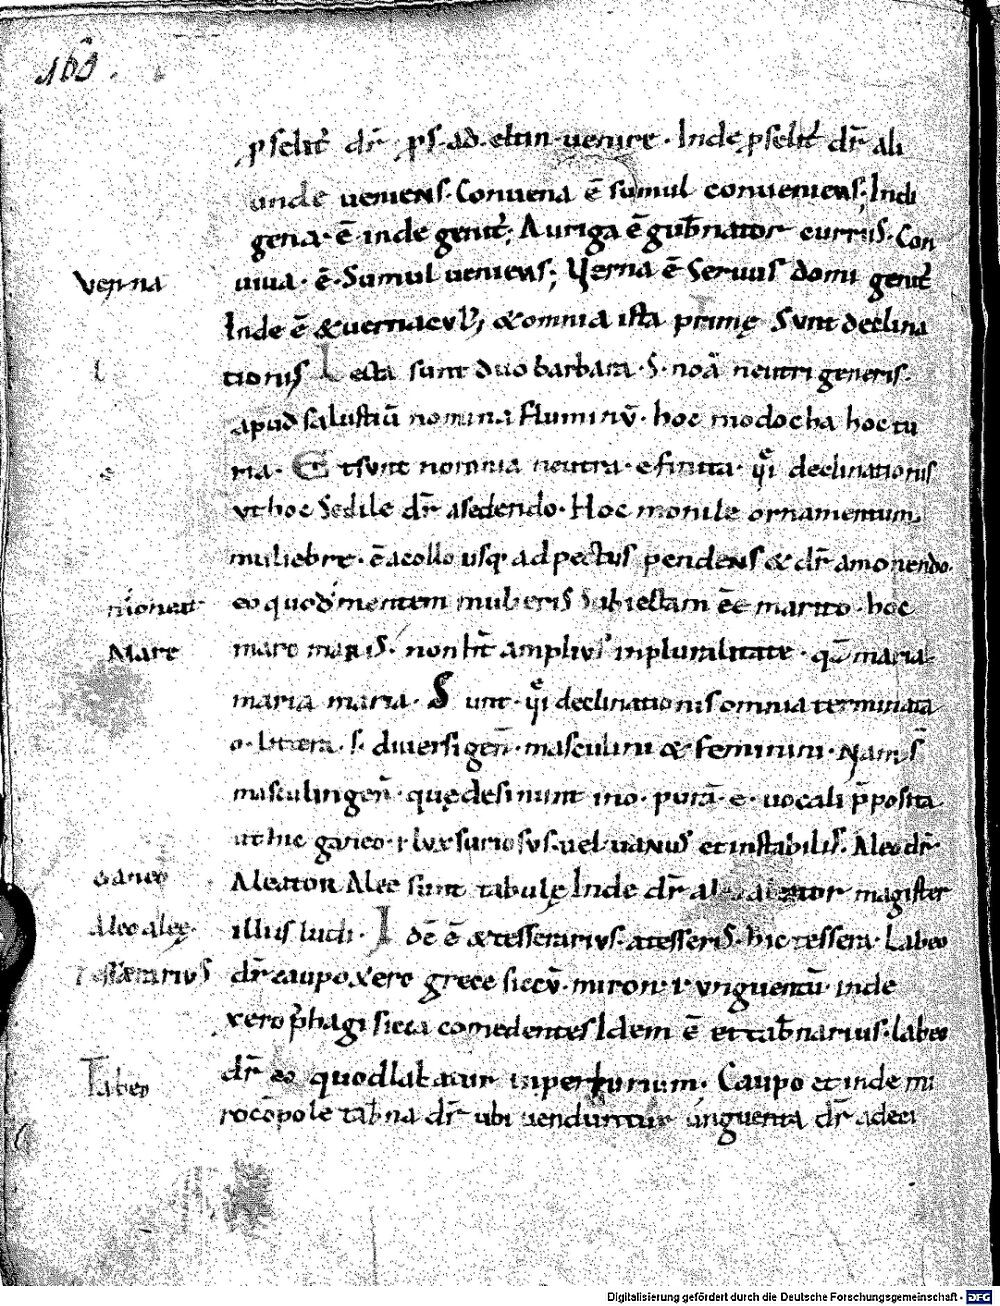 163.
pselit̉ dr̄ ꝑs. ad. eltin. uenire. Inde pselit̉ dr̄ ali
unde ueniens. Conuena ē sumul conueniens; Indi
gena. ē. inde genit̉; Auriga ē gub̄nator currus. Con
uiua. ē. Sumul ueniens; Verna ē Seruus domi genit̉
Verna
Inde ē &uernacul'; &omnia ista primę Sunt declina
tionis Lecta sunt duo barbara. S. noā neutri generis.
apud salustiū nomina fluminū. hoc modocha hoc tu
ria. Et sunt nomnia neutra. e finita. declinationis
vt hoc Sedile dr̄ asedendo. Hoc monile ornamentum
muliebre. ē acollo usq; ad pectus pendens & dr̄ amonendo.
eo quod mentem mulieris Subiectam ēē marito. hoc
Mare
mare maris. non ht̄ amplius inpluralitate. maria
maria maria. Sunt. declinationis omnia terminata
o. littera. s. diuersi gen̄. masculini & feminini. Nam s̄
masculin gen̄. quę desinunt ino. purā. e. uocali p̄posita
ut hic ganeo. luxuriosus. uel uanus et instabilis. Aleo dr̄.
Ganeo
Aleaton Alee sunt tabulę Inde dr̄ magister
Aleo aleę.
illius ludi. Idē ē & tesserarius. atesseris. hic tessera. Labeo
Tesserarius
dr̄ caupo Xero grece siccū. miron. unguentū. inde
xerophagi sicca comedentes Idem ē et tab̄narius. labeo
Labeo
dr̄ eo quod labatur inperiurium. Caupo et inde mi
rocōpole tab̄na dr̄ ubi uenduntur unguenta dr̄ adeci
Digitalisierung gefördert durch die Deutsche Forschungsgemeinschaft - DFG